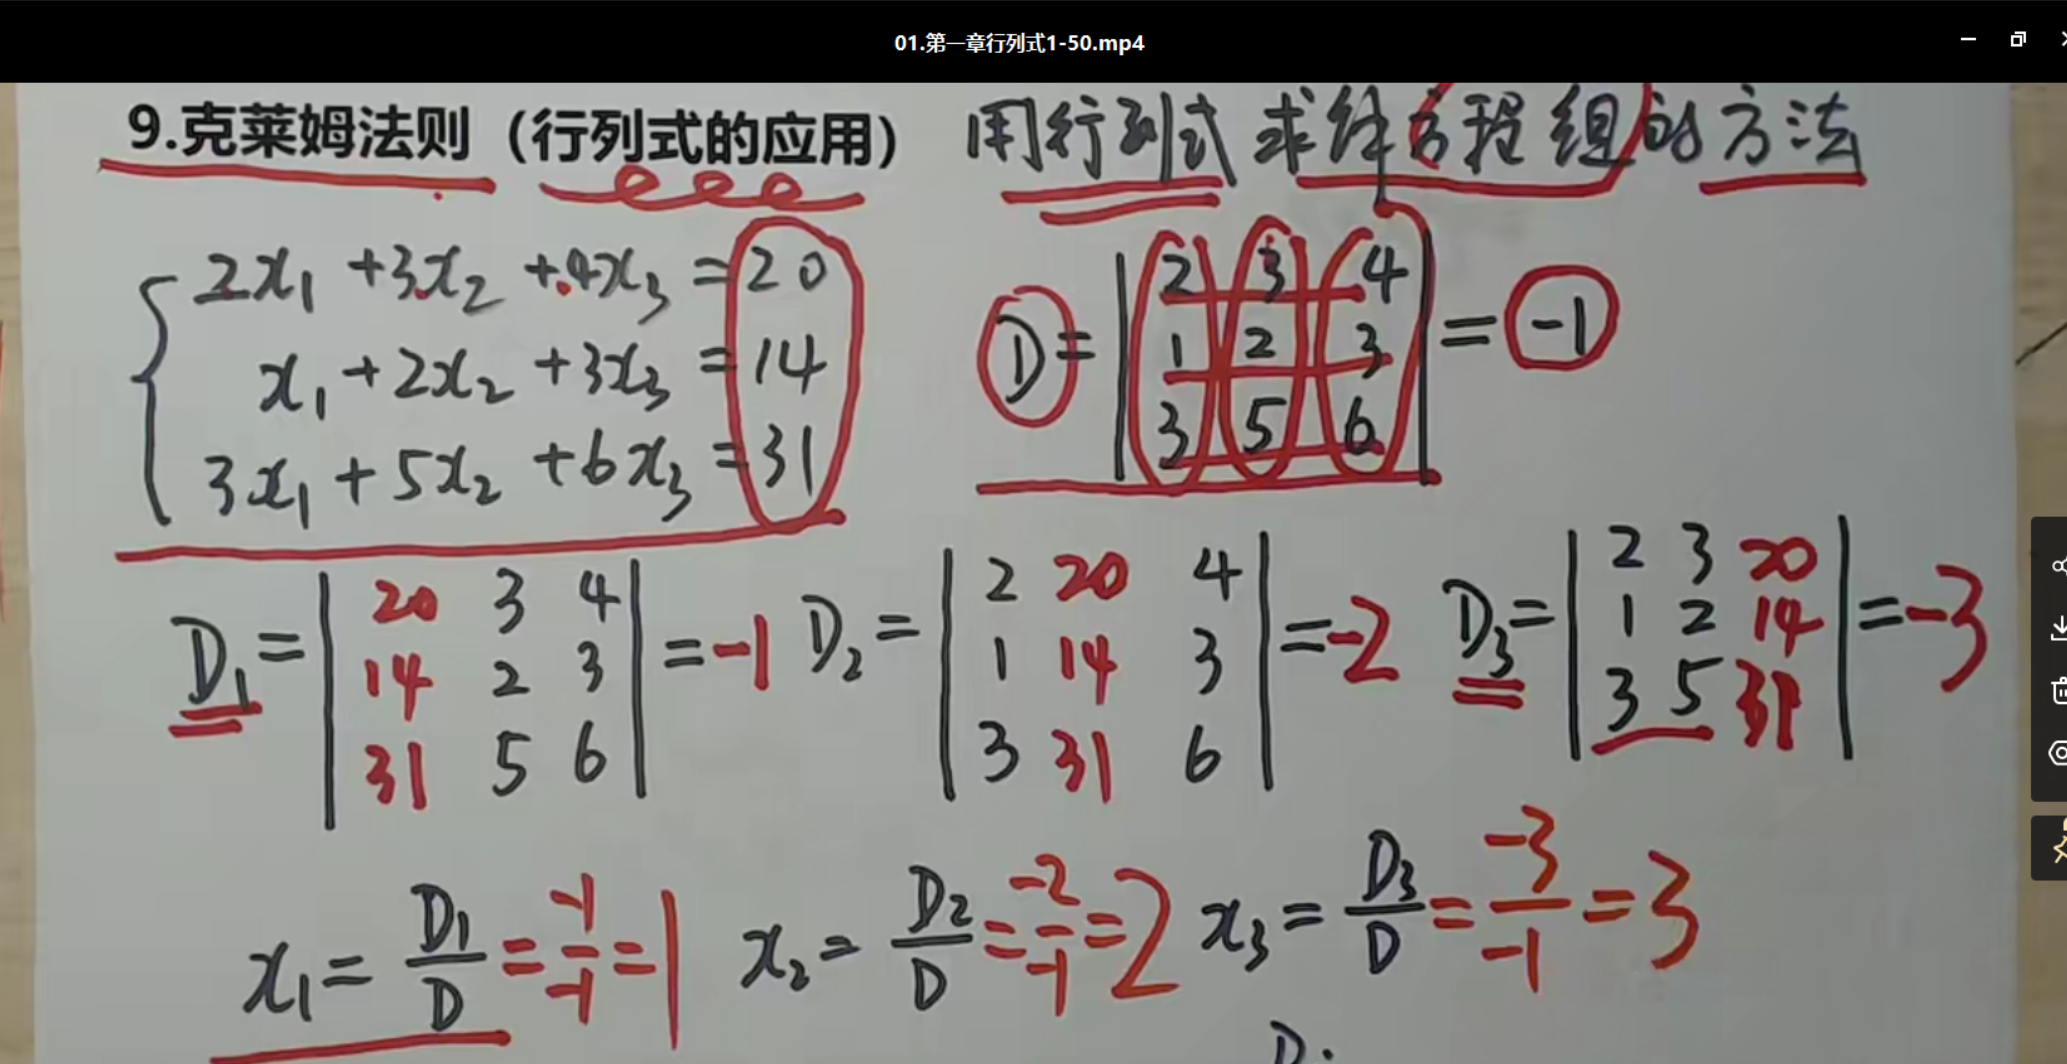 01.第一章行列式1-50.mp4
9.克莱姆法则（行列式的应用） 用行列式求解方程组的方法
2x₁ +3x₂ +4x₃ =20
x₁ +2x₂ +3x₃ =14
3x₁ + 5x₂ +6x₃ =31
D= | 2 3 4 | = -1
1 2 3
3 5 6
D₁ = | 20 3 4 | = -1
14 2 3
31 5 6
D₂ = | 2 20 4 | = -2
1 14 3
3 31 6
D₃ = | 2 3 20 | = -3
1 2 14
3 5 31
x₁ = D₁/D = -1/-1 = 1
x₂ = D₂/D = -2/-1 = 2
x₃ = D₃/D = -3/-1 = 3